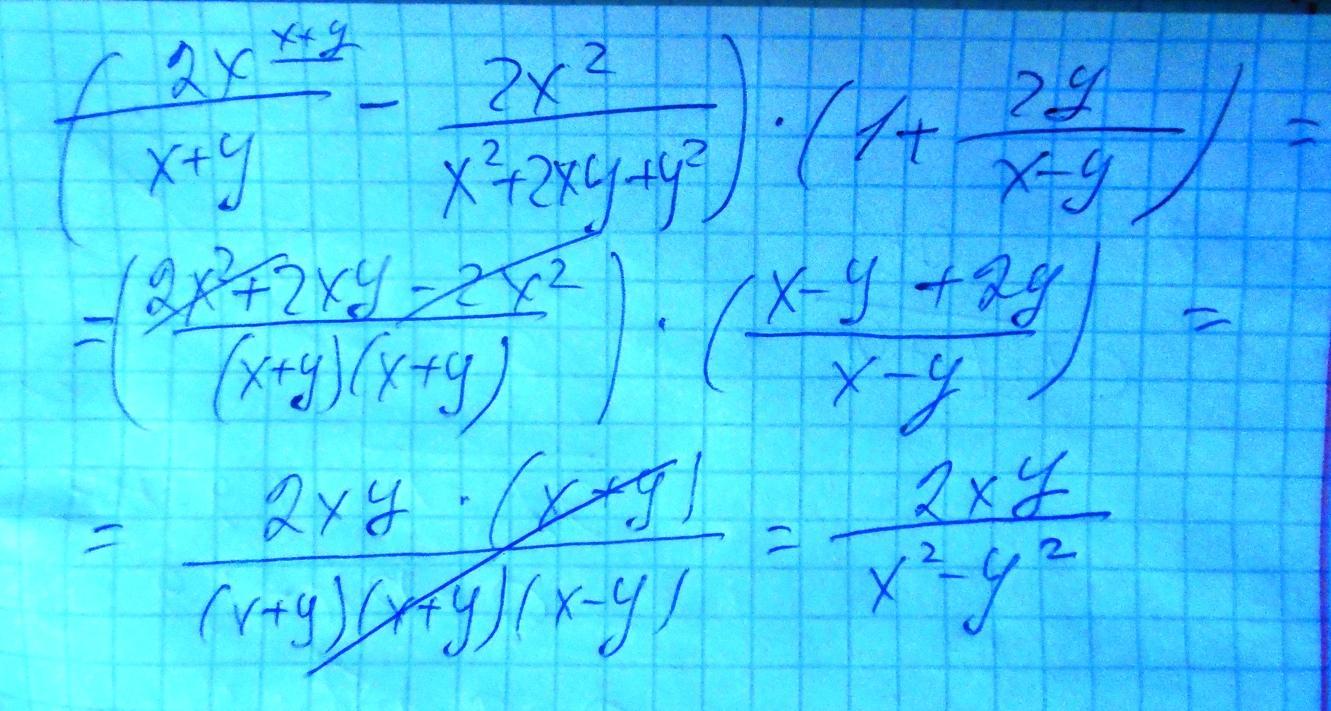 (2x^{x+y}/(x+y) - 2x²/(x²+2xy+y²)) · (1 + 2y/(x-y)) =
= ((2x²+2xy-2x²)/((x+y)(x+y))) · ((x-y+2y)/(x-y)) =
= (2xy · (x+y))/((x+y)(x+y)(x-y)) = 2xy/(x²-y²)